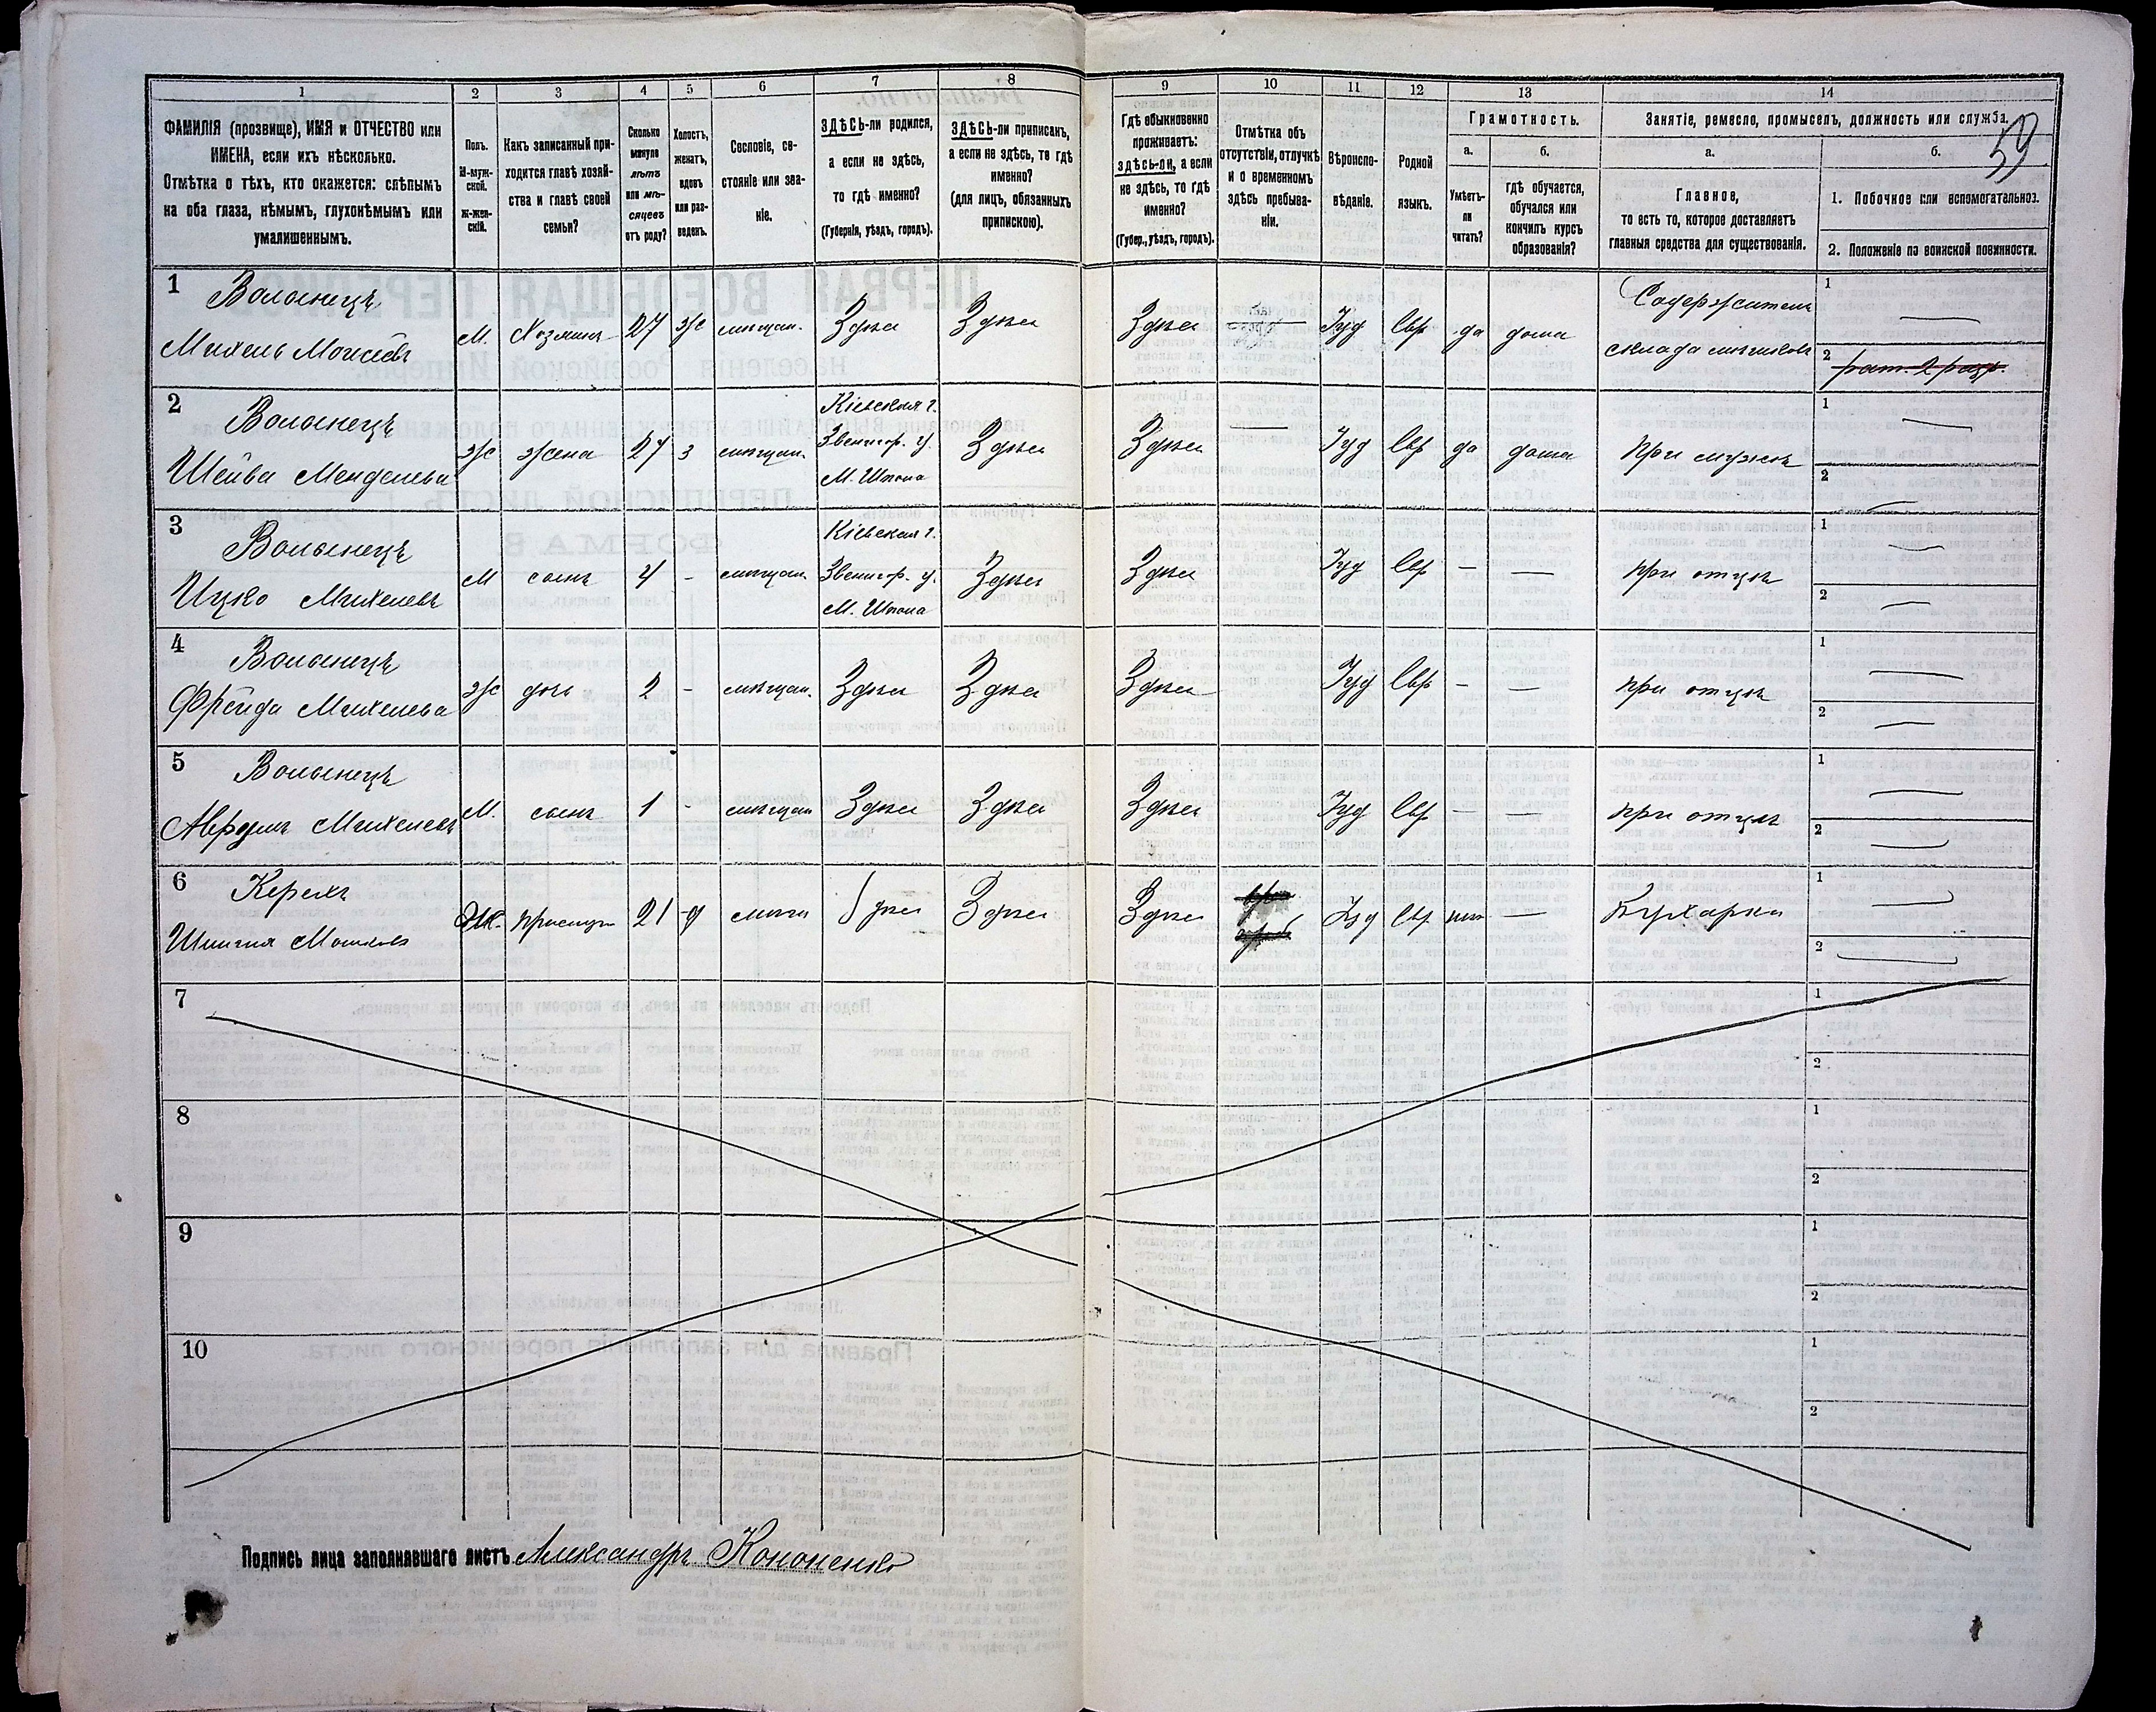 59
1 2 3 4 5 6 7 8 9 10 11 12 13 14
ФАМИЛІЯ (прозвище), ИМЯ и ОТЧЕСТВО или
ИМЕНА, если ихъ нѣсколько.
Отмѣтка о тѣхъ, кто окажется: слѣпымъ
на оба глаза, нѣмымъ, глухонѣмымъ или
умалишеннымъ.
Полъ.
М-муж-
ской.
Ж-жен-
скій.
Какъ записанный при-
ходится главѣ хозяй-
ства и главѣ своей
семьи?
Сколько
минуло
лѣтъ
или мѣ-
сяцевъ
отъ роду?
Холостъ,
женатъ,
вдовъ
или раз-
веденъ.
Сословіе, со-
стояніе или зва-
ніе.
ЗДѢСЬ-ли родился,
а если не здѣсь,
то гдѣ именно?
(Губернія, уѣздъ, городъ).
ЗДѢСЬ-ли приписанъ,
а если не здѣсь, то гдѣ
именно?
(для лицъ, обязанныхъ
припискою).
Гдѣ обыкновенно
проживаетъ:
ЗДѢСЬ-ЛИ, а если
не здѣсь, то гдѣ
именно?
(Губер., уѣздъ, городъ).
Отмѣтка объ
отсутствіи, отлучкѣ
и о временномъ
здѣсь пребыва-
ніи.
Вѣроиспо-
вѣданіе.
Родной
языкъ.
Грамотность.
а.
Умѣетъ-
ли
читать?
б.
гдѣ обучается,
обучался или
кончилъ курсъ
образованія?
Занятіе, ремесло, промыселъ, должность или служба.
а.
Главное,
то есть то, которое доставляетъ
главныя средства для существованія.
б.
1. Побочное или вспомогательное.
2. Положеніе по воинской повинности.
1 Волынецъ
Михель Моисеевъ
М. Хозяинъ 27 ж мѣщан. Здѣсь Здѣсь Здѣсь Іуд Евр да дома
Содержатель
склада мѣшковъ
1
2 рат. 2 разр.
2 Волынецъ
Шейва Менделева
ж жена 27 з мѣщан.
Кіевская г.
Звенигор. у.
М. Шпола
Здѣсь Здѣсь — Іуд Евр да дома при мужѣ
1
2
3 Волынецъ
Ицко Михелевъ
М сынъ 4 - мѣщан.
Кіевская г.
Звенигор. у.
М. Шпола
Здѣсь Здѣсь Іуд Евр — — при отцѣ
1
2
4 Волынецъ
Фрейда Михелева
ж дочь 2 - мѣщан. Здѣсь Здѣсь Здѣсь Іуд Евр — — при отцѣ
1
2
5 Волынецъ
Аврумъ Михелевъ
М. сынъ 1 - мѣщан Здѣсь Здѣсь Здѣсь Іуд Евр — — при отцѣ
1
2
6
Ж. прислуг 21 д Здѣсь Здѣсь Здѣсь Іуд Евр нѣт — Кухарка
1
2
7
1
2
8
1
2
9
1
2
10
1
2
Подпись лица заполнявшаго листъ Александръ Кононенко